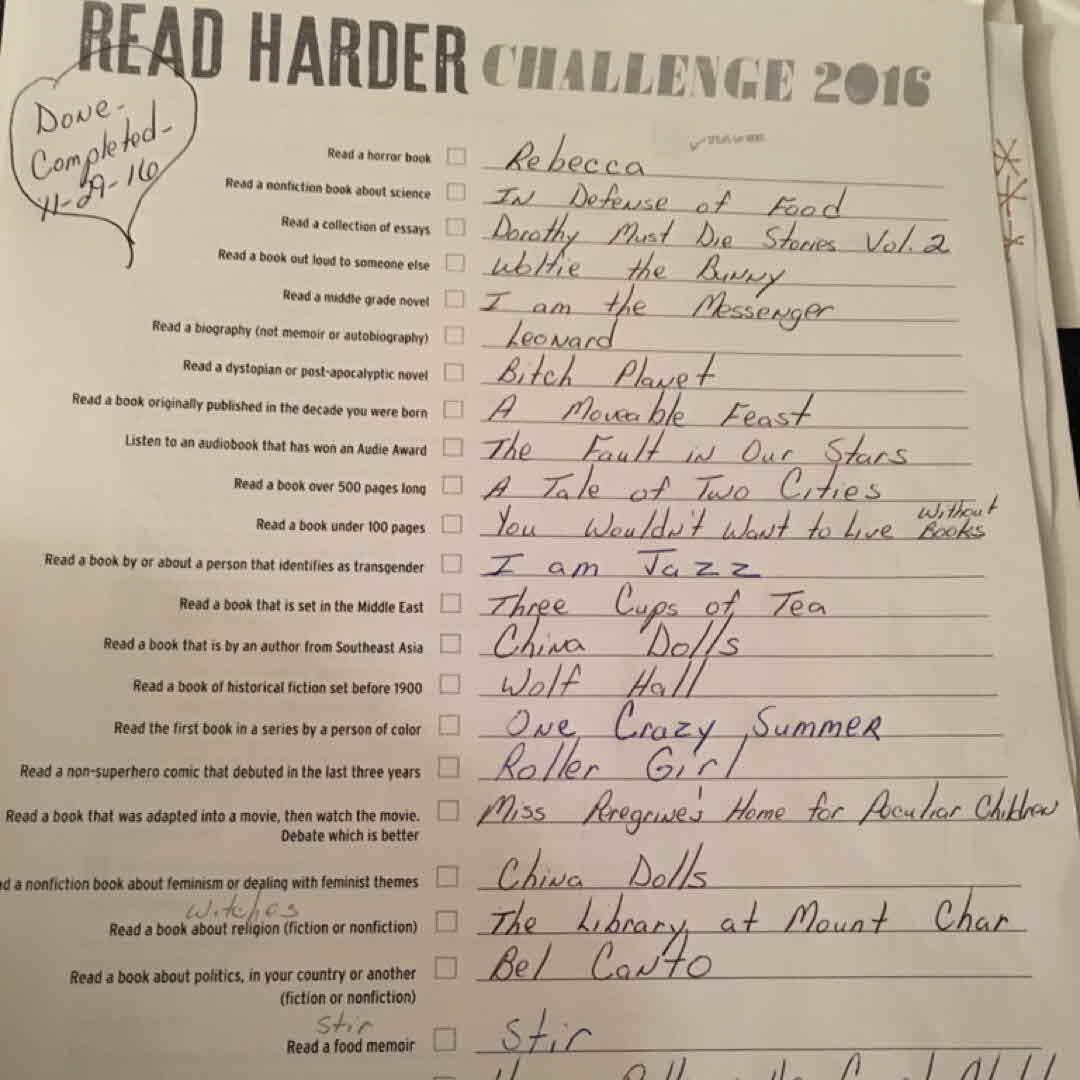 READ HARDER CHALLENGE 2016
Done-
Completed-
11-29-16
Read a horror book Rebecca
Read a nonfiction book about science In Defense of Food
Read a collection of essays Dorothy Must Die Stories Vol. 2
Read a book out loud to someone else Wolfie the Bunny
Read a middle grade novel I am the Messenger
Read a biography (not memoir or autobiography) Leonard
Read a dystopian or post-apocalyptic novel Bitch Planet
Read a book originally published in the decade you were born A Moveable Feast
Listen to an audiobook that has won an Audie Award The Fault in Our Stars
Read a book over 500 pages long A Tale of Two Cities
Read a book under 100 pages You Wouldn't Want to Live Without Books
Read a book by or about a person that identifies as transgender I am Jazz
Read a book that is set in the Middle East Three Cups of Tea
Read a book that is by an author from Southeast Asia China Dolls
Read a book of historical fiction set before 1900 Wolf Hall
Read the first book in a series by a person of color One Crazy Summer
Read a non-superhero comic that debuted in the last three years Roller Girl
Read a book that was adapted into a movie, then watch the movie. Miss Peregrine's Home for Peculiar Children
Debate which is better
d a nonfiction book about feminism or dealing with feminist themes China Dolls
Witches
Read a book about religion (fiction or nonfiction) The Library at Mount Char
Read a book about politics, in your country or another Bel Canto
(fiction or nonfiction)
Stir
Read a food memoir Stir